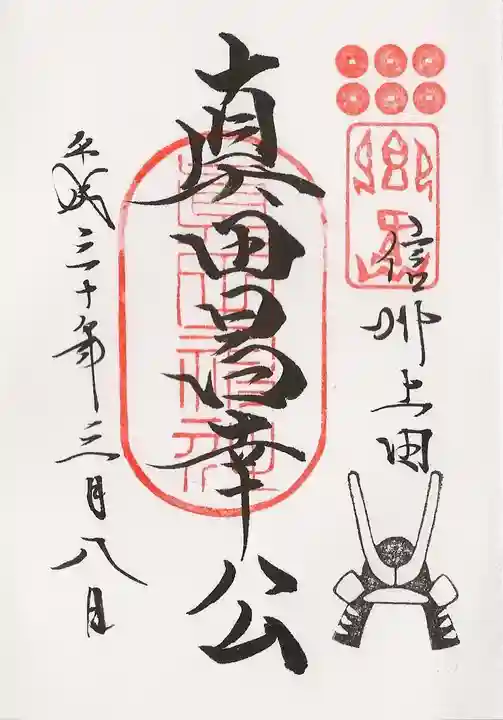 信州上田
眞田昌幸公
平成三十年三月八日